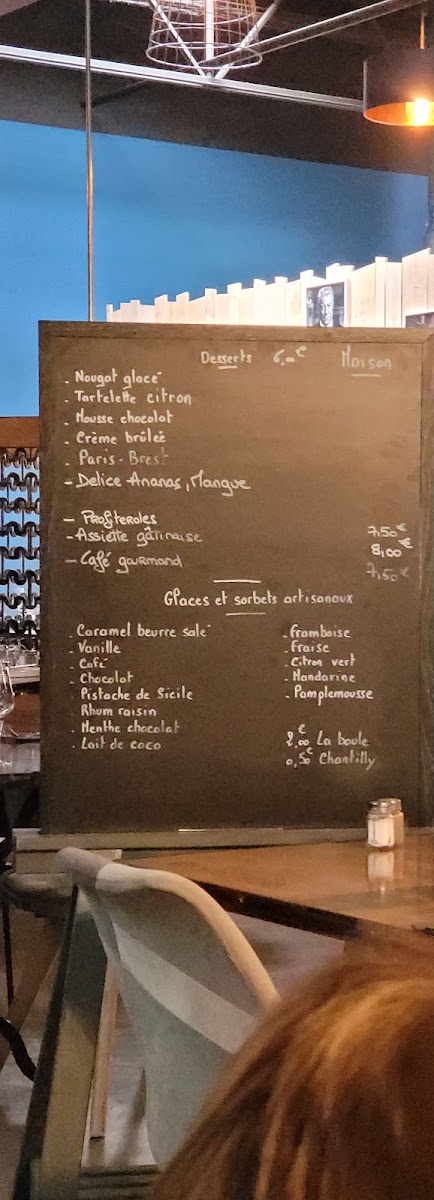 Desserts 6,00€ Maison
. Nougat glacé
. Tartelette citron
. Mousse chocolat
. Crème brûlée
. Paris-Brest
- Délice Ananas, Mangue
- Profiteroles 7,50€
- Assiette gâtinaise 8,00€
- Café gourmand 7,50€
Glaces et sorbets artisanaux
. Caramel beurre salé
. Vanille
. Café
. Chocolat
. Pistache de Sicile
. Rhum raisin
. Menthe chocolat
. Lait de coco
. Framboise
. Fraise
. Citron vert
. Mandarine
. Pamplemousse
2,00€ La boule
0,50€ Chantilly